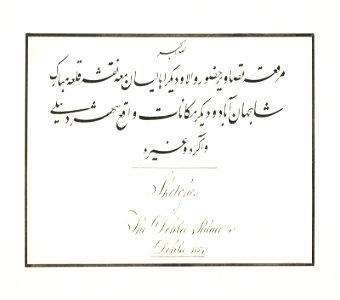 مرقعہ تصاویر حضور والا و دیگر اہالیان معہ نقشہ قلعہ مبارک
شاہجہان آباد و دیگر مکانات واقع شہر دہلی
و آگرہ وغیرہ
Sketches
of
The Dehlee Palace &
Dehlee